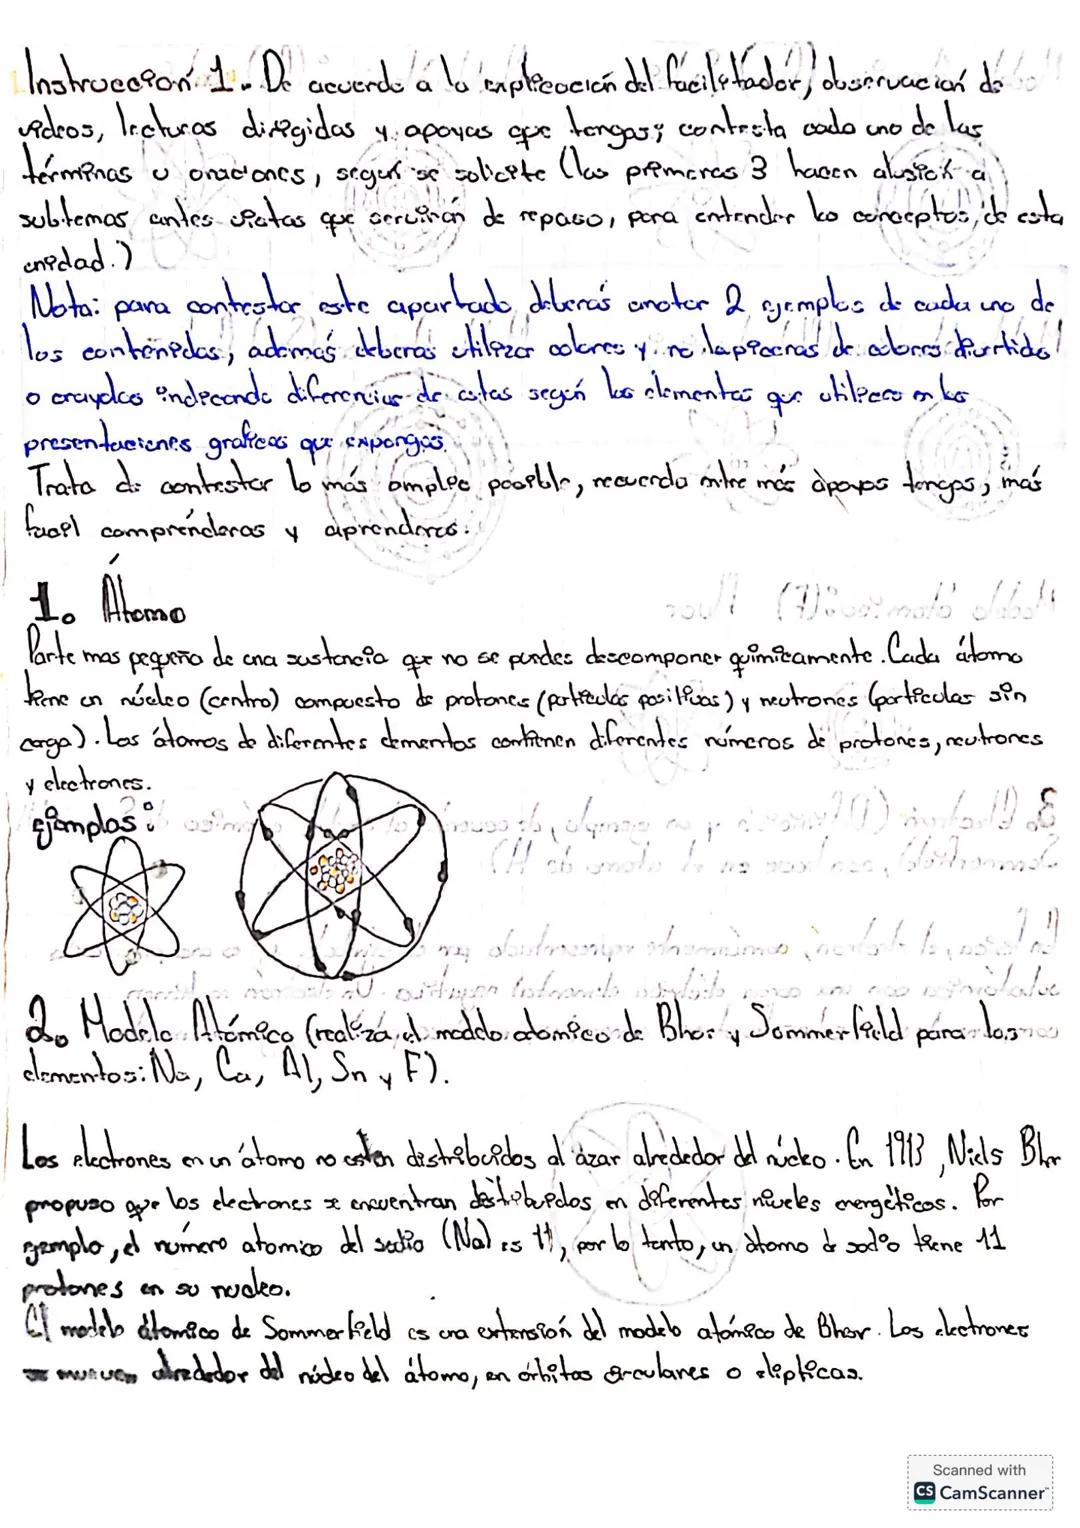 Instrucción 1. De acuerdo a la explicación del facilitador, observación de
videos, lecturas dirigidas y apoyas que tengas; contesta cada uno de las
términas u oraciones, según se solicite (las primeras 3 hacen alusión a
subtemas antes vistas que servirán de repaso, para entender los conceptos, de esta
unidad.)
Nota: para contestar este apartado deberás anotar 2 ejemplos de cada uno de
los contenidas, además deberás utilizar colores y no lapiceras de colores divertido
o crayolas indicando diferencias de estas según los elementos que utilices en las
presentaciones graficas que expongas.
Trata de contestar lo más amplio posible, recuerda entre más apoyos tengas, más
facil comprenderas y aprenderas.
1. Átomo
Parte mas pequeña de una sustancia que no se puedes descomponer químicamente. Cada átomo
tiene un núcleo (centro) compuesto de protones (partículas positivas) y neutrones (particulas sin
carga). Los átomos de diferentes elementos contienen diferentes números de protones, neutrones
y electrones.
ejemplos:
2. Modelo Atómico (realiza el modelo atomico de Bhor y Sommerfield para los
elementos: Na, Ca, Al, Sn y F).
Los electrones en un átomo no están distribuidos al ázar alrededor del núcleo. En 1913, Niels Bhor
propuso que los electrones se encuentran distribuidos en diferentes niveles energéticos. Por
ejemplo, el número atomico del sodio (Na) es 11, por lo tanto, un átomo de sodio tiene 11
protones en su nucleo.
El modelo átomico de Sommerfield es una extensión del modelo atómico de Bhor. Los electrones
se mueven alrededor del núcleo del átomo, en órbitas circulares o elípticas.
Scanned with
CS CamScanner